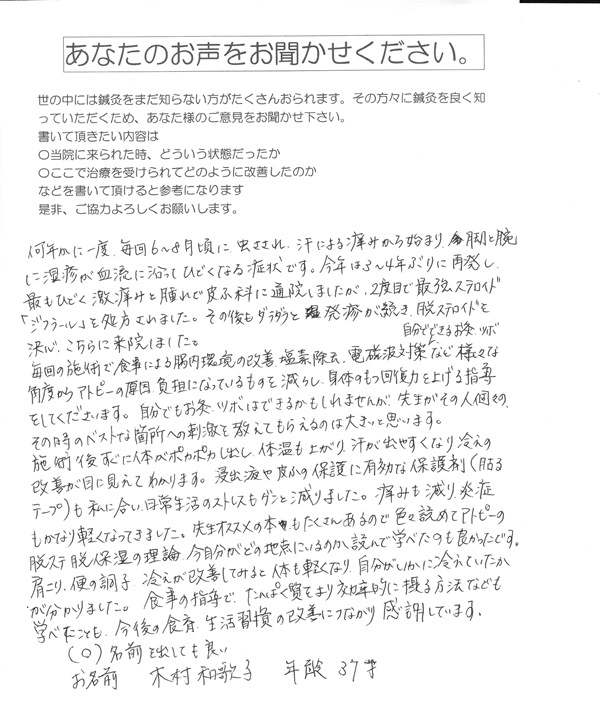 あなたのお声をお聞かせください。
世の中には鍼灸をまだ知らない方がたくさんおられます。その方々に鍼灸を良く知
っていただくため、あなた様のご意見をお聞かせ下さい。
書いて頂きたい内容は
○当院に来られた時、どういう状態だったか
○ここで治療を受けられてどのように改善したのか
などを書いて頂けると参考になります
是非、ご協力よろしくお願いします。
何年かに一度、毎回6～8月頃に、虫さされ、汗による痒みから始まり、脚と腕
に湿疹が血流に沿ってひどくなる症状です。今年は3～4年ぶりに再発し、
最もひどく激痒みと腫れで皮ふ科に通院しましたが、2度目で最強ステロイド
「ジフラール」を処方されました。その後もダラダラと発疹が続き、脱ステロイドを
決心、こちらに来院しました。
自分でできるお灸、ツボ
毎回の施術で食事による腸内環境の改善、塩素除去、電磁波対策など様々な
角度からアトピーの原因、負担になっているものを減らし、身体のもつ回復力を上げる指導
をしてくださいます。自分でもお灸、ツボはできるかもしれませんが、先生がその人個々の、
その時のベストな箇所への刺激を教えてもらえるのは大きいと思います。
施術後すぐに体がポカポカし出し、体温も上がり、汗が出やすくなり冷えの
改善が目に見えてわかります。浸出液や皮ふの保護に有効な保護剤(貼る
テープ)も私に合い、日常生活のストレスもグンと減りました。痒みも減り、炎症
もかなり軽くなってきました。先生オススメの本もたくさんあるので色々読めてアトピーの
脱ステ、脱保湿の理論、今自分がどの地点にいるのか、読んで学べたのも良かったです。
肩こり、便の調子、冷えが改善してみると体も軽くなり、自分がいかに冷えていたか
が分かりました。食事の指導で、たんぱく質をより効率的に摂る方法なども
学べたことも、今後の食育、生活習慣の改善につながり感謝しています。
(○)名前を出しても良い
お名前 木村 和歌子 年齢 37才